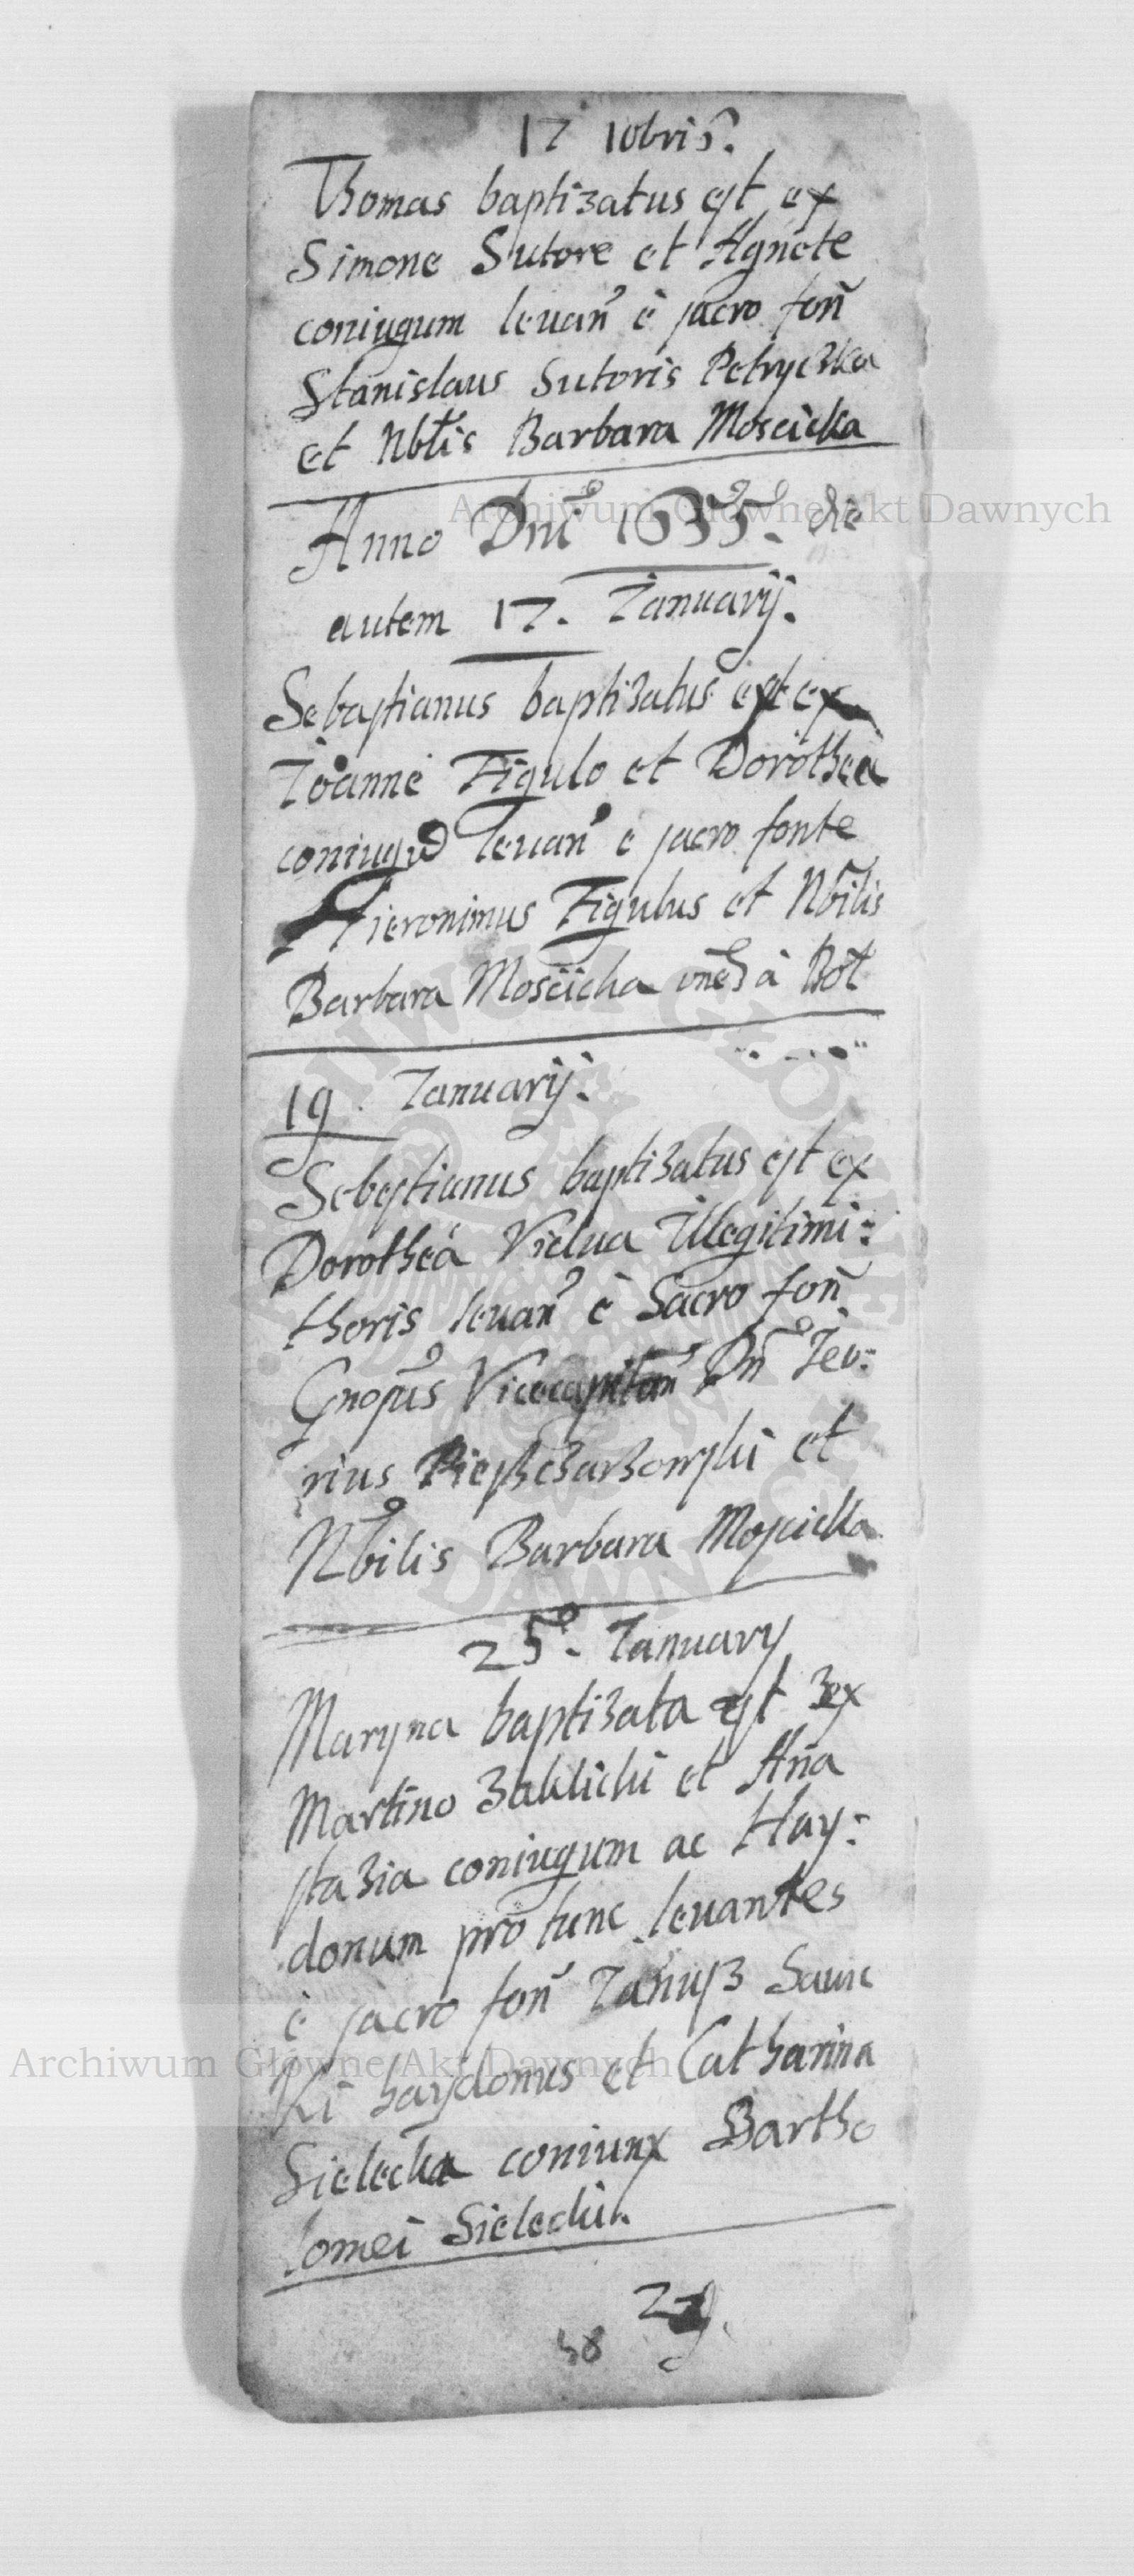 17 10bris.
Thomas baptizatus est ex
Simone Sutore et Agnete
coniugum leuan̄ è sacro fon̄
Stanislaus Sutoris Petryczka
et Nbtis Barbara Moscicka
Anno Dni 1635. die
autem 17. Januarij.
Sebastianus baptizatus est ex
Joanne Figulo et Dorothea
coniugū leuan̄ è sacro fonte
Hieronimus Figulus et Nbilis
Barbara Moscicka à
19. Januarij.
Sebestianus baptizatus est ex
Dorotheá Vidua Illegitimi:
thoris leuan̄ è Sacro fon̄
Vicecapitan̄ Dn̄
rius et
Nbilis Barbara Moscicka
25. January
Maryna baptizata est ex
Martino Zaklicki et Ana
stazia coniugum ac Hay:
donum pro tunc leuantes
è sacro fon̄ Janusz Sawic
ki haydonus et Catharina
Sielecka coniunx Bartho
lomei Sielecki.
29.
58
Archiwum Główne Akt Dawnych
Archiwum Główne Akt Dawnych